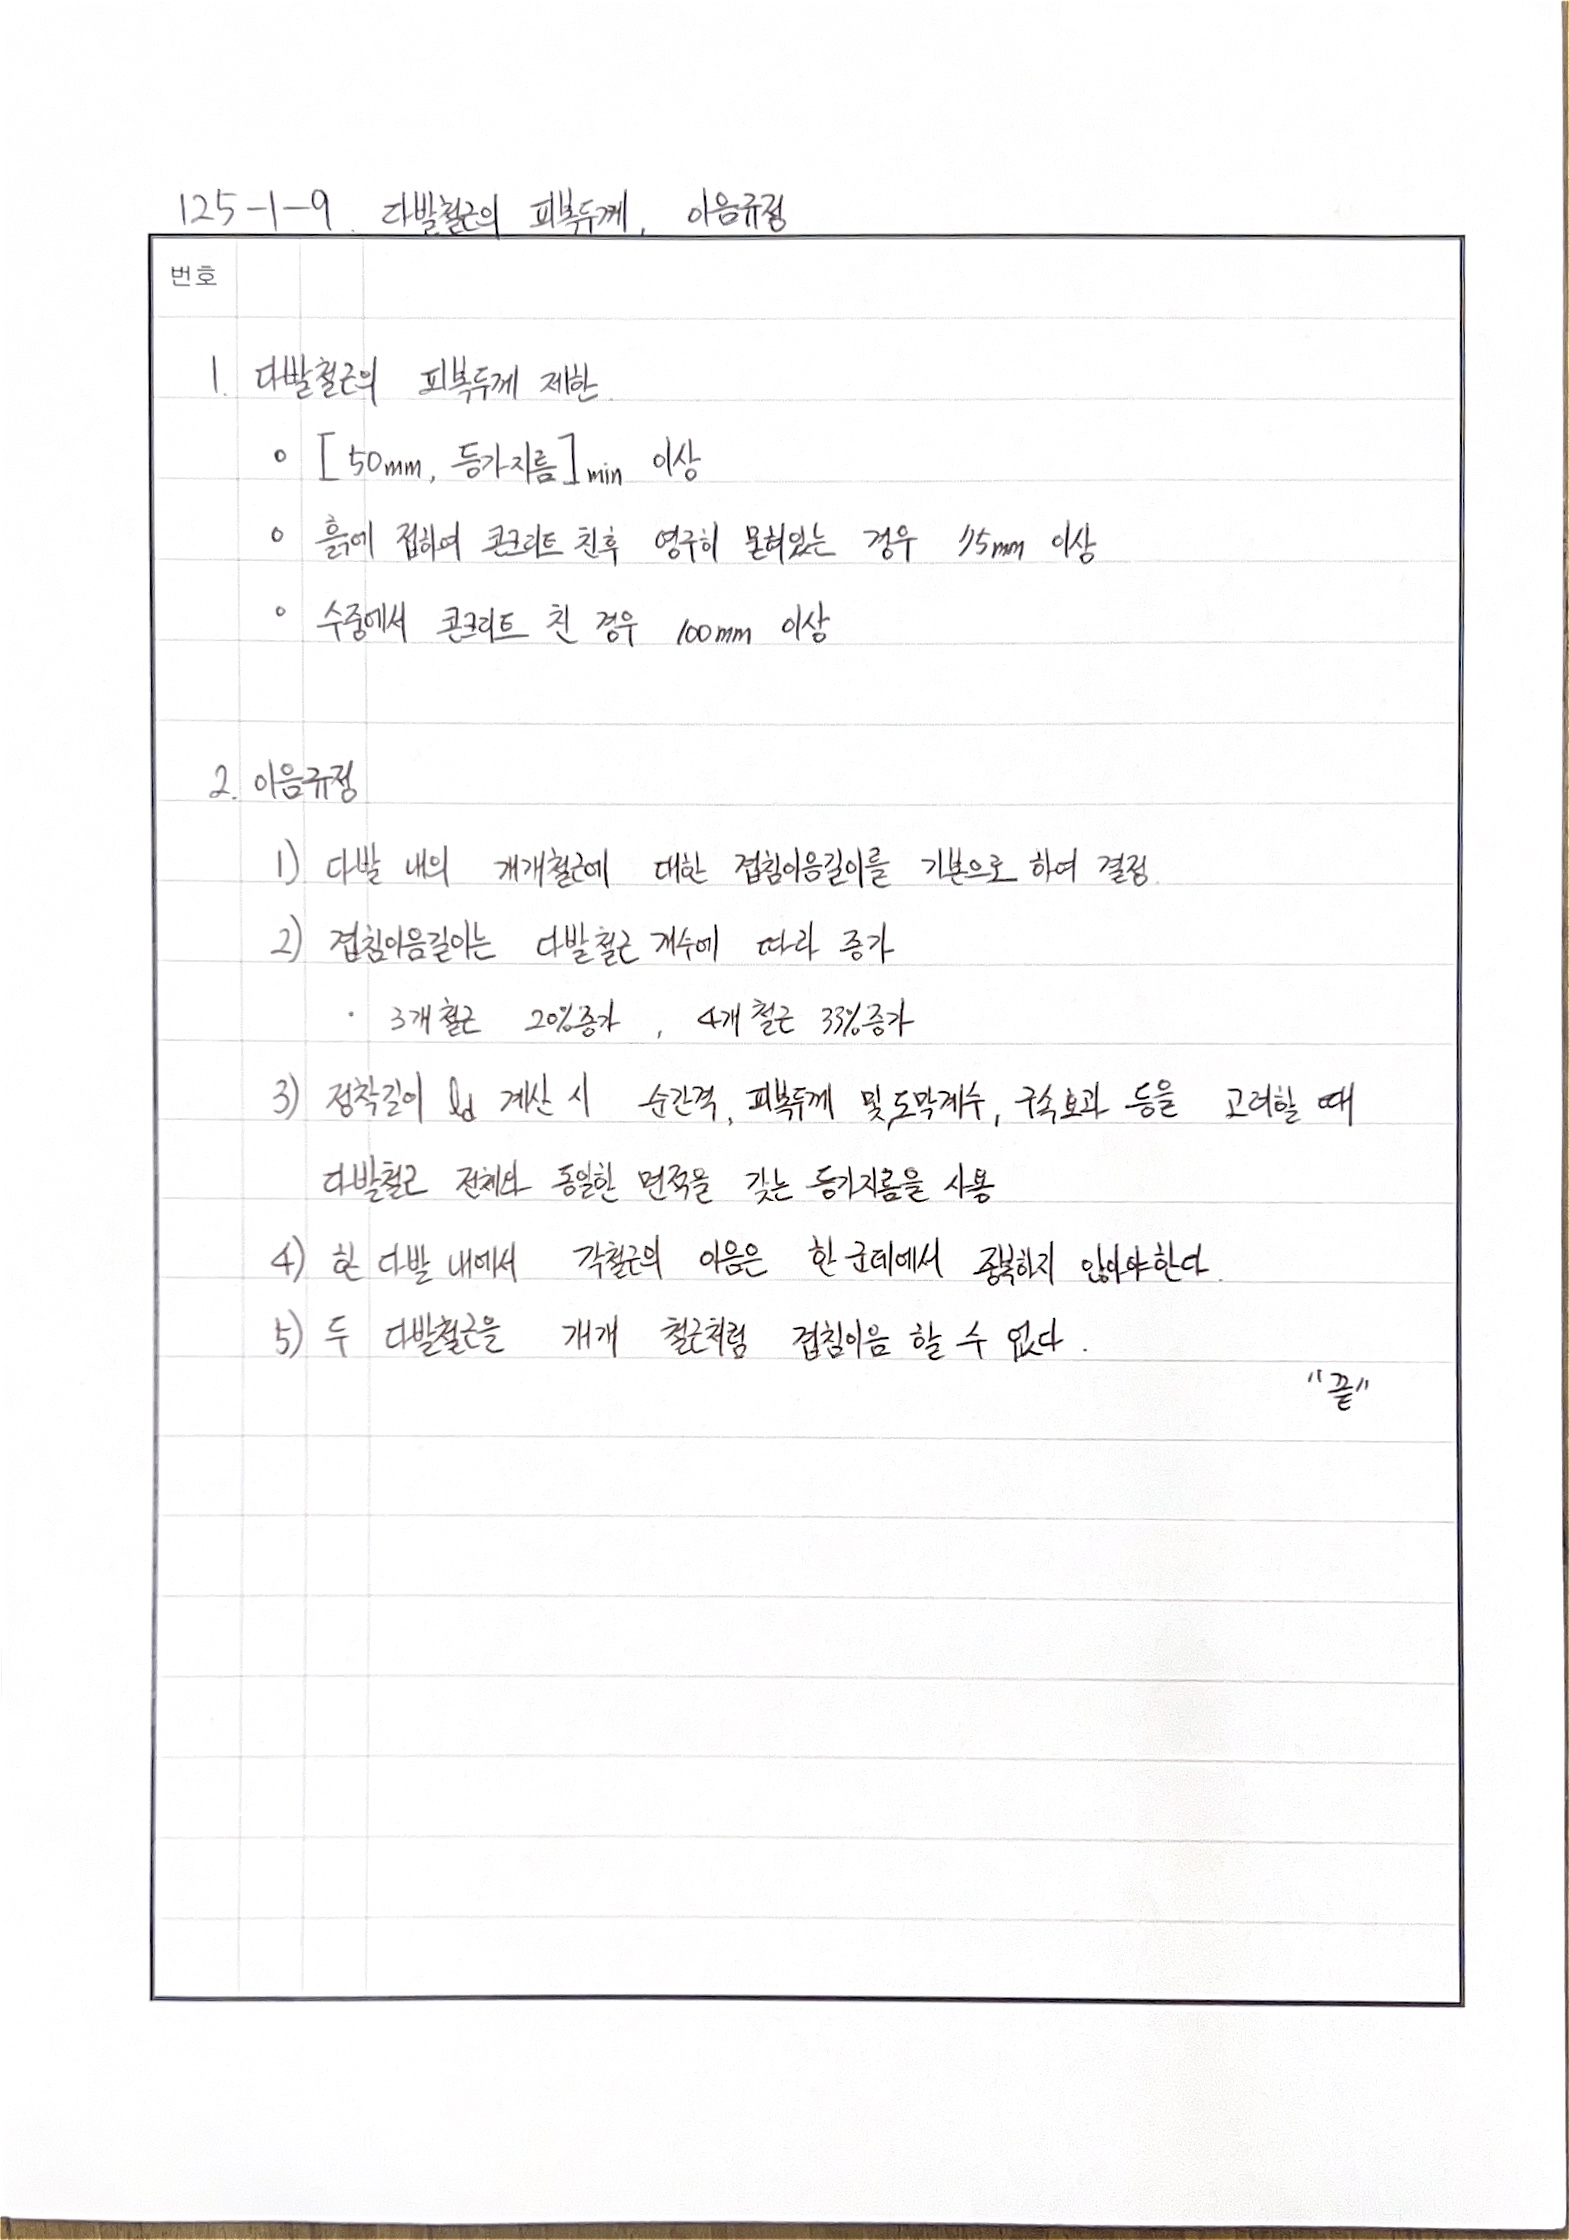 125-1-9. 다발철근의 피복두께, 이음규정
번호
1. 다발철근의 피복두께 제한.
o [50mm, 등가지름]min 이상
o 흙에 접하여 콘크리트 친후 영구히 묻혀있는 경우 75mm 이상
o 수중에서 콘크리트 친 경우 100mm 이상
2. 이음규정
1) 다발 내의 개개철근에 대한 겹침이음길이를 기본으로 하여 결정.
2) 겹침이음길이는 다발철근 개수에 따라 증가
· 3개철근 20%증가, 4개철근 33%증가
3) 정착길이 ld 계산 시 순간격, 피복두께 및 도막계수, 구속효과 등을 고려할 때
다발철근 전체와 동일한 면적을 갖는 등가지름을 사용
4) 한 다발 내에서 각철근의 이음은 한 군데에서 중복하지 않아야한다.
5) 두 다발철근을 개개 철근처럼 겹침이음 할 수 없다.
"끝"